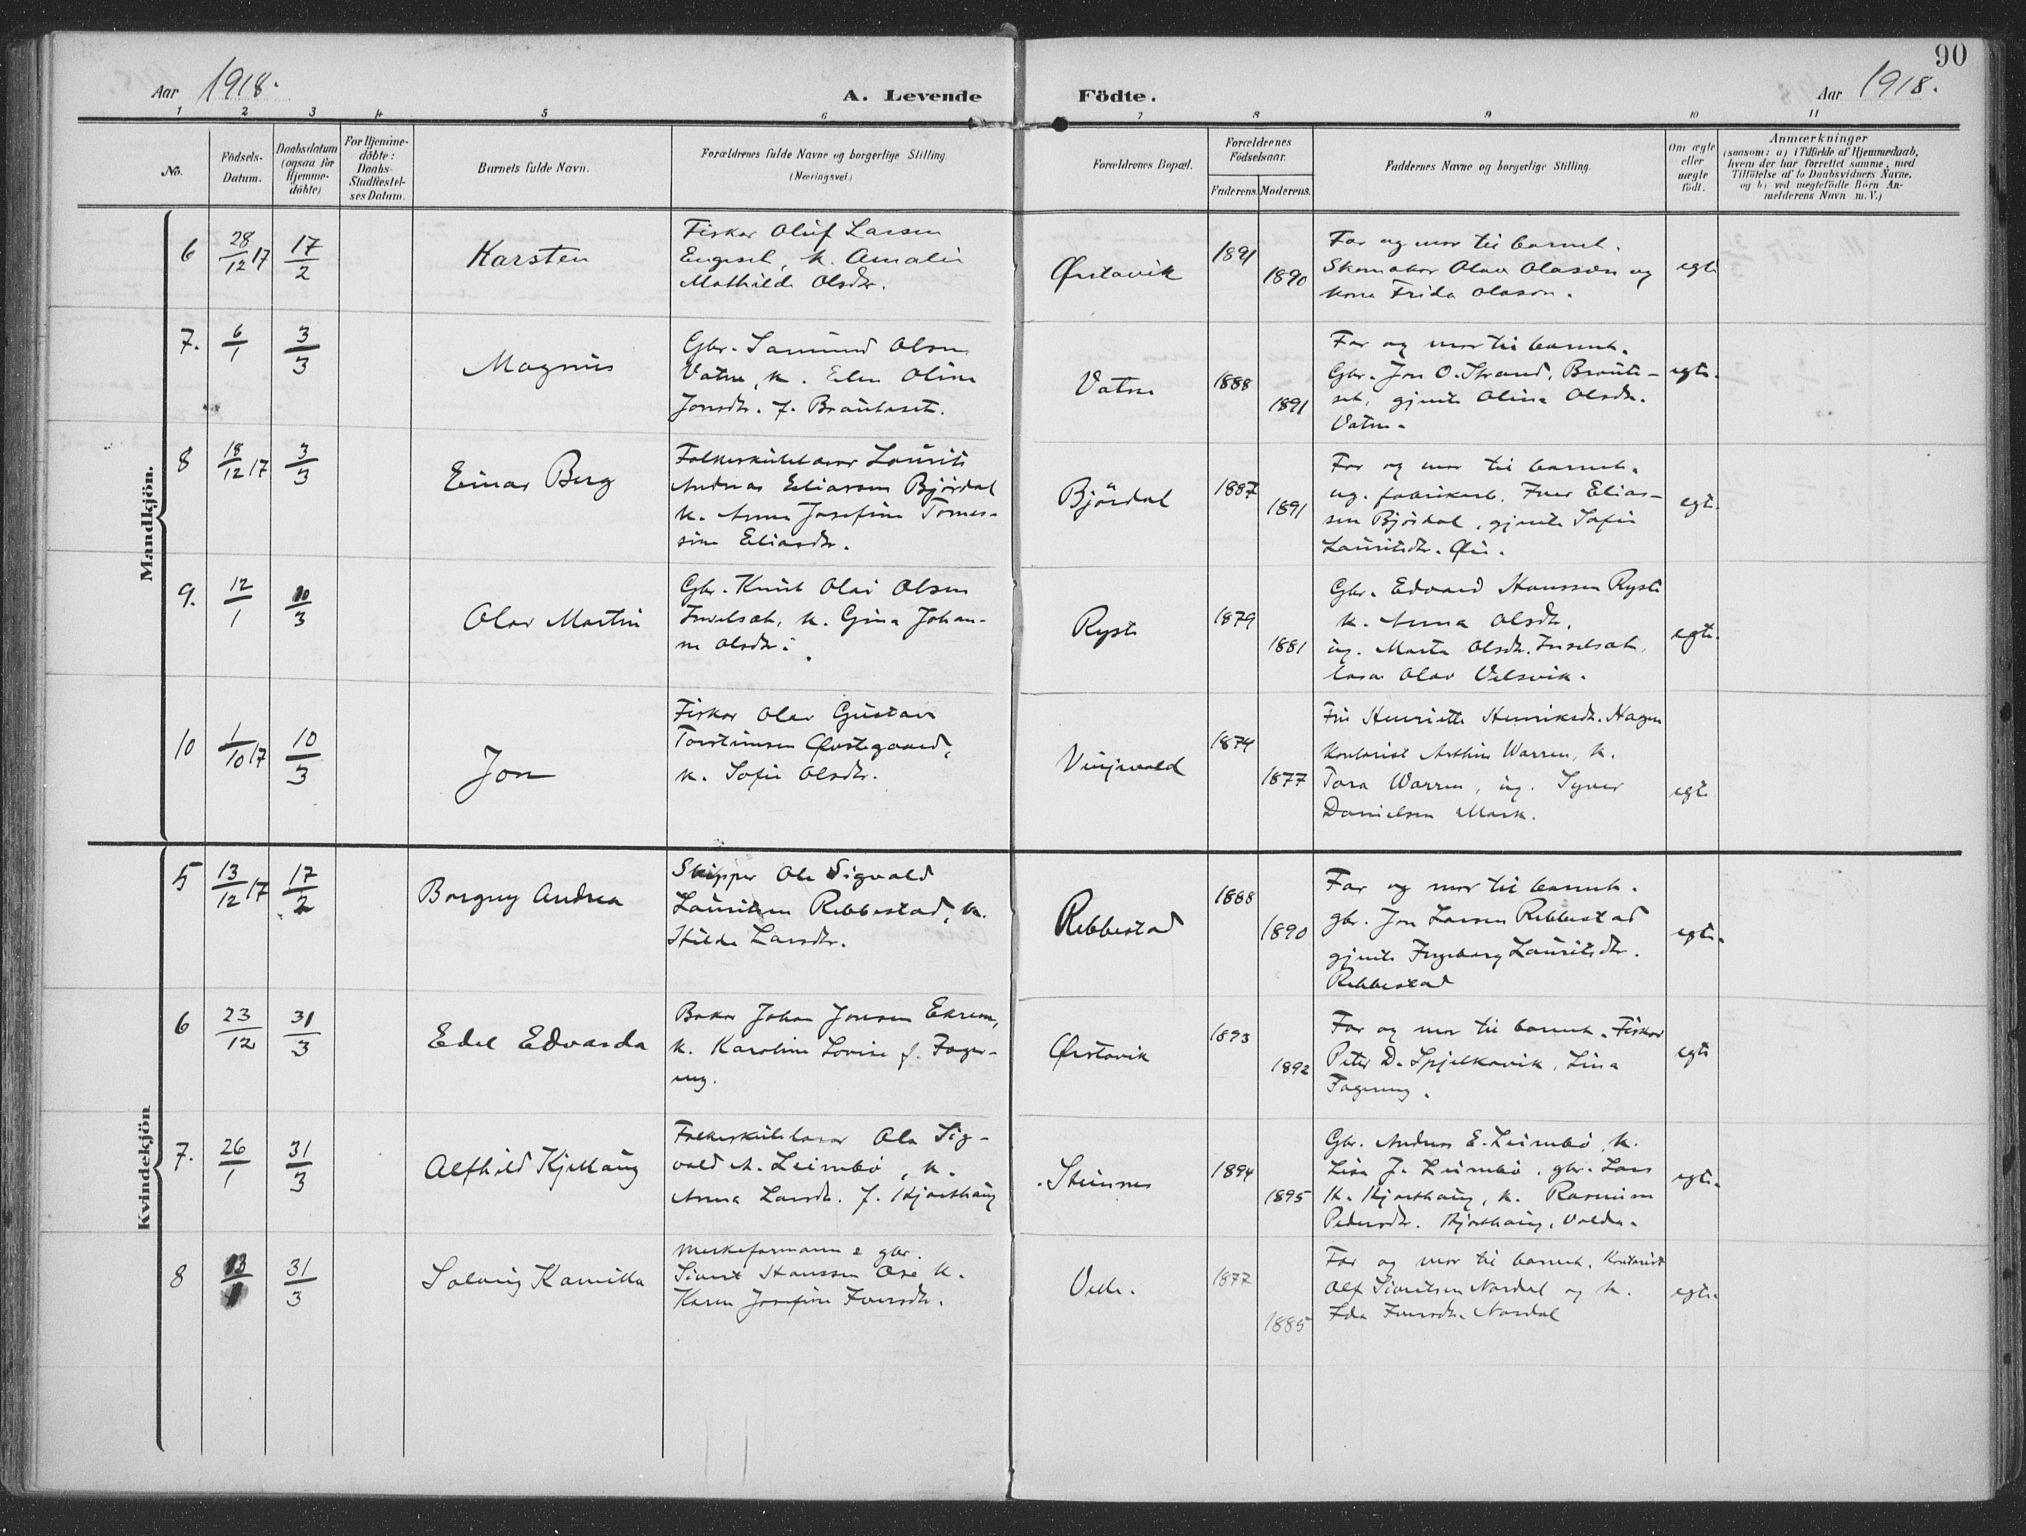 90
Aar 1918.
A. Levende Födte.
Aar 1918.
1 2 3 4 5 6 7 8 9 10 11
No.
Födsels-
Datum.
Daabsdatum
(ogsaa for
Hjemme-
döbte)
For Hjemme-
döbte:
Daabs-
Stadfæstel-
ses Datum.
Barnets fulde Navn.
Forældrenes fulde Navne og borgerlige Stilling.
(Næringsvei.)
Forældrenes Bopæl.
Forældrenes
Födselsaar.
Faderens. Moderens.
Faddernes Navne og borgerlige Stilling.
Om ægte
eller
uægte
født.
Anmærkninger
(saasom: a) i Tilfælde af Hjemmedaab,
hvem der har forrettet samme, med
Tilföielse af to Daabsvidners Navne,
og b) ved uægtefödte Börn An-
melderens Navn m. V.)
Mandkjön.
6 28/12 17 17/2 Karsten
Fisker Oluf Larsen
Engeset, k. Amalie
Mathilde Olsdtr.
Ørstavik 1891 1890
Far og mor til barnet.
Skomaker Olav Olason og
kone Frida Olason.
egte
7. 6/1 3/3 Magnus
Gbr. Samund Olsen
Vatne, k. Elen Oline
Jonsdtr. f. Brautaset.
Vatne 1888 1891
Far og mor til barnet.
Gbr. Jon O. Strand, Braute-
set, gjente Olina Olsdtr.
Vatne.
egte.
8 18/12 17 3/3 Einar Berg
Folkeskulelærar Laurits
Andreas Eliassen Bjørdal
k. Anna Josefine Tomas-
sine Eliasdtr.
Bjørdal 1887 1891
Far og mor til barnet.
ug. fabrikarb. Iver Elias-
sen Bjørdal, gjente Sofie
Lauritsdtr. Øie.
egte.
9. 12/1 10/3 Olav Martin
Gbr. Knut Olai Olsen
k. Gina Johan-
ne Olsdtr.
Ryste 1879 1881
Gbr. Edvard Hanssen Ryste
k. Anna Olsdtr.
ug. Marta Olsdtr.
Olav Velsvik.
egte.
10 1/10 17 10/3 Jon
Fisker Olav Gustav
Torsteinsen Øvstegaard,
k. Sofie Olsdtr.
Vinjevold 1874 1877
Fru Henriette Henriksdtr. Hagen
Kontorist Arthur Warren, k.
Tora Warren, ug. Syver
Danielsen Mork.
egte
Kvindekjön
5 13/12 17 17/2 Borgny Andrea
Skipper Ole Sigvald
Lauritsen Rebbestad, k.
Hilda Larsdtr.
Rebbestad 1888 1890
Far og mor til barnet.
gbr. Jon Larsen Rebbestad
gjente Ingeborg Lauritsdtr.
Rebbestad
egte.
6 23/12 31/3 Edel Edvarda
Baker Johan Jonsen Ekrem,
k. Karoline Lovise f. Fager-
eng.
Ørstavik 1893 1892
Far og mor til barnet. Fisker
Peter D. Spjelkavik, Lina
Fagereng.
egte
7. 26/1 31/3 Alfhild Kjellaug
Folkeskulelærar Ole Sig-
vald A. Leinebø, k.
Anna Larsdtr. f. Hjorthaug
Steinnes 1894 1895
Gbr. Andreas E. Leinebø, k.
Lisa J. Leinebø, gbr. Lars
K. Hjorthaug, k. Rasmine
Pedersdtr. Hjorthaug, Volda.
egte.
8 13/1 31/3 Solveig Kamilla
Merkeformann & gbr.
Sivert Hanssen Ose k.
Karen Josefine Iversdtr.
Velle. 1877 1885
Far og mor til barnet. Kontorist
Alf Sivertsen Nordal og k.
Ida Iversdtr. Nordal
egte.